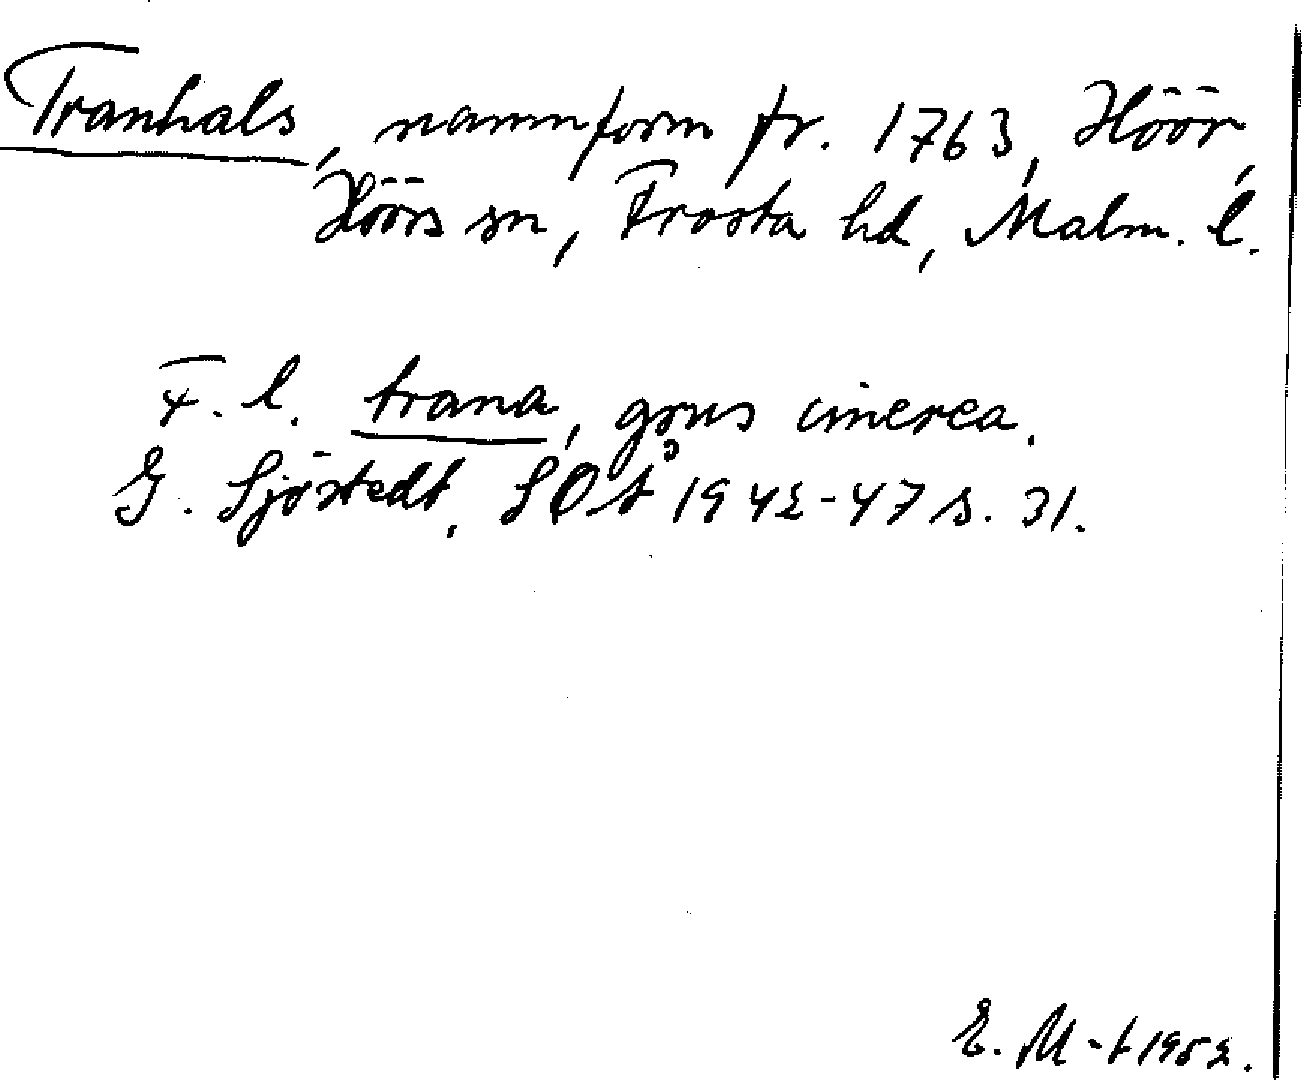 Tranhals, namnform fr. 1763, Höör,
Höörs sn, Frosta hd, Malm. l.
F. l. trana, grus cinerea.
G. Sjöstedt, SOÅ 1942-47 s. 31.
E. M-t 1952.